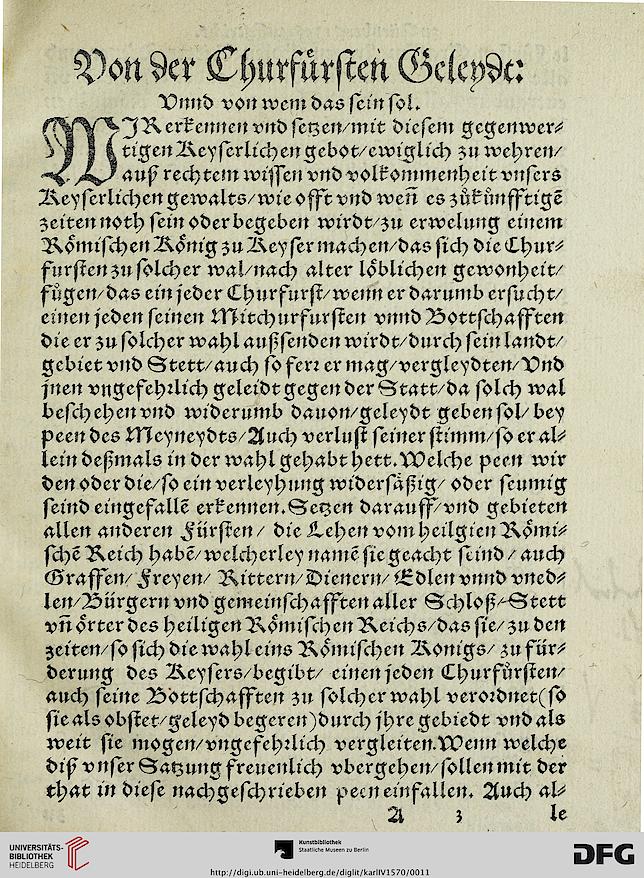 Von der Churfürsten Geleydt:
Vnnd von wem das sein sol.
WIR erkennen vnd setzen/mit diesem gegenwer⸗
tigen Keyserlichen gebot/ewiglich zu wehren/
auß rechtem wissen vnd volkommenheit vnsers
Keyserlichen gewalts/wie offt vnd weñ es zůkünfftigẽ
zeiten noth sein oder begeben wirdt/zu erwelung einem
Römischen König zu Keyser machen/das sich die Chur⸗
fursten zu solcher wal/nach alter löblichen gewonheit/
fůgen/das ein jeder Churfurst/wenn er darumb ersucht/
einen jeden seinen Mitchurfursten vnnd Bottschafften
die er zu solcher wahl außsenden wirdt/durch sein landt/
gebiet vnd Stett/auch so ferr er mag/vergleydten/Vnd
jnen vngefehrlich geleidt gegen der Statt/da solch wal
beschehen vnd widerumb dauon/geleydt geben sol/bey
peen des Meyneydts/Auch verlust seiner stimm/so er al⸗
lein deßmals in der wahl gehabt hett. Welche peen wir
den oder die/so ein verleyhung widersäßig/oder seumig
seind eingefallẽ erkennen. Setzen darauff/vnd gebieten
allen anderen Fürsten/ die Lehen vom heilgien Römi⸗
schẽ Reich habẽ/welcherley namẽ sie geacht seind/ auch
Graffen/Freyen/ Rittern/Dienern/Edlen vnnd vned⸗
len/Bürgern vnd gemeinschafften aller Schloß/Stett
vñ örter des heiligen Römischen Reichs/das sie/zu den
zeiten/so sich die wahl eins Römischen Konigs/zu für⸗
derung des Keysers/begibt/ einen jeden Churfůrsten/
auch seine Bottschafften zu solcher wahl verordnet(so
sie als obstet/geleyd begeren)durch jhre gebiedt vnd als
weit sie mogen/vngefehrlich vergleiten. Wenn welche
diß vnser Satzung freuenlich vbergehen/sollen mit der
that in diese nachgeschrieben peen einfallen. Auch al⸗
A 3 le
UNIVERSITÄTS-
BIBLIOTHEK
HEIDELBERG
Kunstbibliothek
Staatliche Museen zu Berlin
DFG
http://digi.ub.uni-heidelberg.de/diglit/karlIV1570/0011